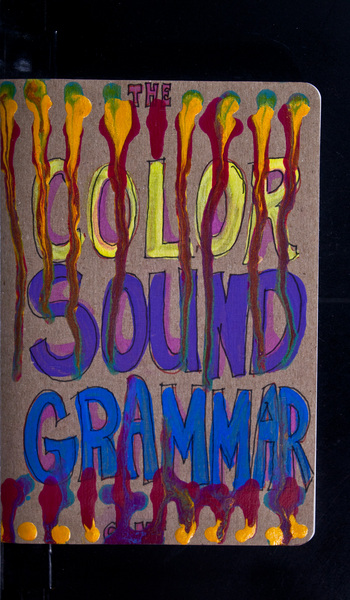 THE
COLOR
SOUND
GRAMMAR